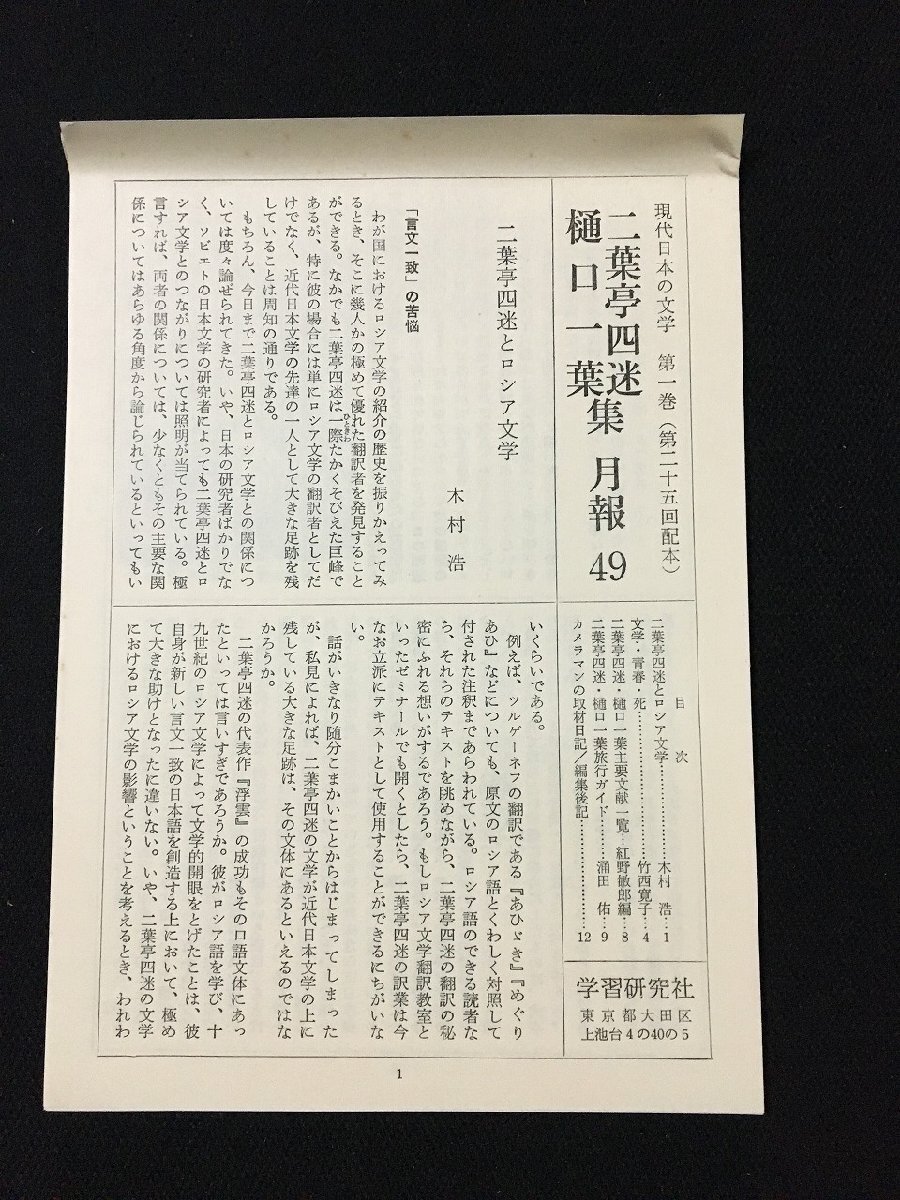 現代日本の文学　第一巻（第二十五回配本）
二葉亭四迷集　月報 49
樋口一葉
目　次
二葉亭四迷とロシア文学……………木村　浩…1
文学・青春・死……………竹西寛子…4
二葉亭四迷・樋口一葉主要文献一覧…紅野敏郎編…8
二葉亭四迷・樋口一葉旅行ガイド……涌田　佑…9
カメラマンの取材日記／編集後記……………12
学習研究社
東京都大田区
上池台4の40の5
二葉亭四迷とロシア文学
木村　浩
「言文一致」の苦悩
わが国におけるロシア文学の紹介の歴史を振りかえってみ
るとき、そこに幾人かの極めて優れた翻訳者を発見すること
ができる。なかでも二葉亭四迷は一際ひときわたかくそびえた巨峰で
あるが、特に彼の場合には単にロシア文学の翻訳者としてだ
けでなく、近代日本文学の先達の一人として大きな足跡を残
していることは周知の通りである。
もちろん、今日まで二葉亭四迷とロシア文学との関係につ
いては度々論ぜられてきた。いや、日本の研究者ばかりでな
く、ソビエトの日本文学の研究者によっても二葉亭四迷とロ
シア文学とのつながりについては照明が当てられている。極
言すれば、両者の関係については、少なくともその主要な関
係についてはあらゆる角度から論じられているといってもい
いくらいである。
例えば、ツルゲーネフの翻訳である『あひゞき』『めぐり
あひ』などについても、原文のロシア語とくわしく対照して
付された注釈まであらわれている。ロシア語のできる読者な
ら、それらのテキストを眺めながら、二葉亭四迷の翻訳の秘
密にふれる想いがするであろう。もしロシア文学翻訳教室と
いったゼミナールでも開くとしたら、二葉亭四迷の訳業は今
なお立派にテキストとして使用することができるにちがいな
い。
話がいきなり随分こまかいことからはじまってしまった
が、私見によれば、二葉亭四迷の文学が近代日本文学の上に
残している大きな足跡は、その文体にあるといえるのではな
かろうか。
二葉亭四迷の代表作『浮雲』の成功もその口語文体にあっ
たといっては言いすぎであろうか。彼がロシア語を学び、十
九世紀のロシア文学によって文学的開眼をとげたことは、彼
自身が新しい言文一致の日本語を創造する上において、極め
て大きな助けとなったに違いない。いや、二葉亭四迷の文学
におけるロシア文学の影響ということを考えるとき、われわ
1